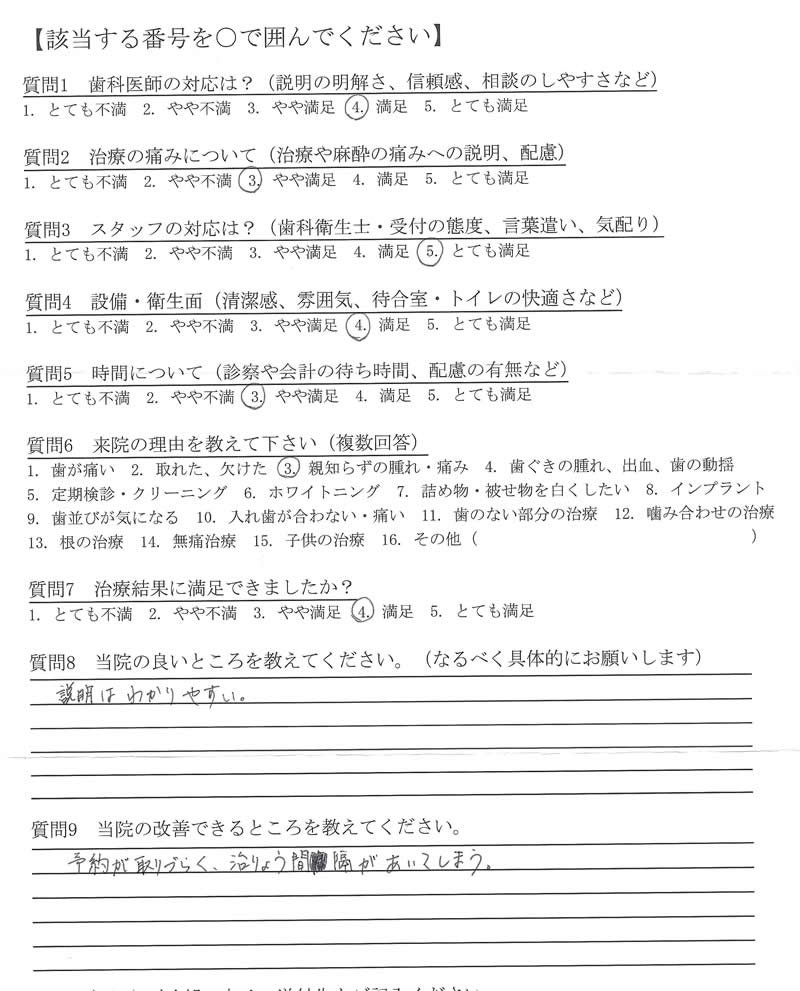 【該当する番号を○で囲んでください】
質問1　歯科医師の対応は？（説明の明解さ、信頼感、相談のしやすさなど）
1. とても不満 2. やや不満 3. やや満足 4. 満足 5. とても満足
質問2　治療の痛みについて（治療や麻酔の痛みへの説明、配慮）
1. とても不満 2. やや不満 3. やや満足 4. 満足 5. とても満足
質問3　スタッフの対応は？（歯科衛生士・受付の態度、言葉遣い、気配り）
1. とても不満 2. やや不満 3. やや満足 4. 満足 5. とても満足
質問4　設備・衛生面（清潔感、雰囲気、待合室・トイレの快適さなど）
1. とても不満 2. やや不満 3. やや満足 4. 満足 5. とても満足
質問5　時間について（診察や会計の待ち時間、配慮の有無など）
1. とても不満 2. やや不満 3. やや満足 4. 満足 5. とても満足
質問6　来院の理由を教えて下さい（複数回答）
1. 歯が痛い 2. 取れた、欠けた 3. 親知らずの腫れ・痛み 4. 歯ぐきの腫れ、出血、歯の動揺
5. 定期検診・クリーニング 6. ホワイトニング 7. 詰め物・被せ物を白くしたい 8. インプラント
9. 歯並びが気になる 10. 入れ歯が合わない・痛い 11. 歯のない部分の治療 12. 噛み合わせの治療
13. 根の治療 14. 無痛治療 15. 子供の治療 16. その他（　　　）
質問7　治療結果に満足できましたか？
1. とても不満 2. やや不満 3. やや満足 4. 満足 5. とても満足
質問8　当院の良いところを教えてください。（なるべく具体的にお願いします）
説明はわかりやすい。
質問9　当院の改善できるところを教えてください。
予約が取りづらく、治りょう間隔があいてしまう。